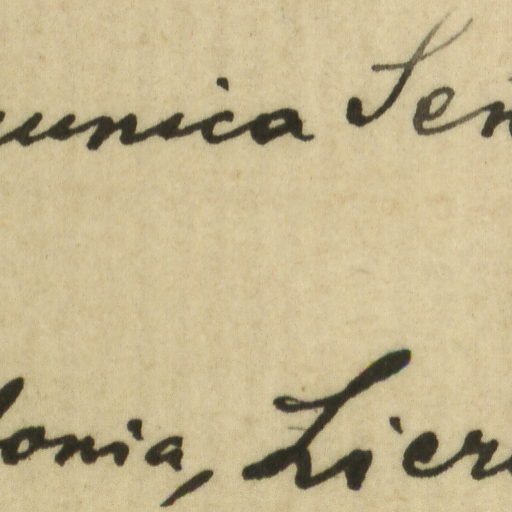 unica Sen
onia, Lier